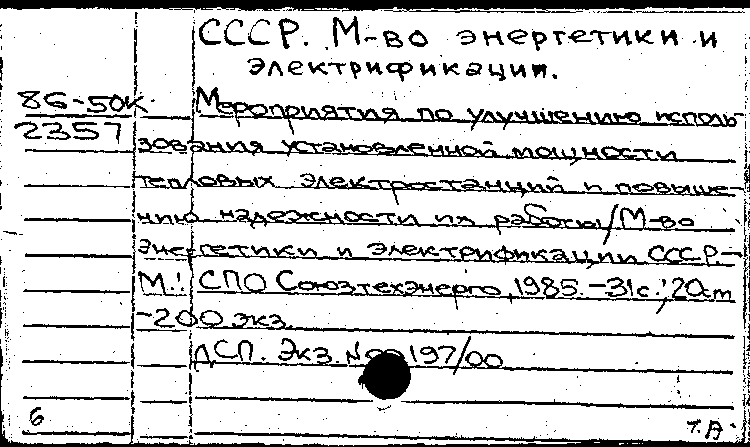 СССР. М-во энергетики и
электрификации.
86-50к.
2357
Мероприятия по улучшению исполь
зования установленной мощности
тепловых электростанций и повыше-
нию надежности их работы/М-во
энергетики и электрификации СССР.-
М.: СПО Союзтехэнерго, 1985.-31с.; 20см
-200 экз.
ДСП. Экз. № 197/00
6
т.А.